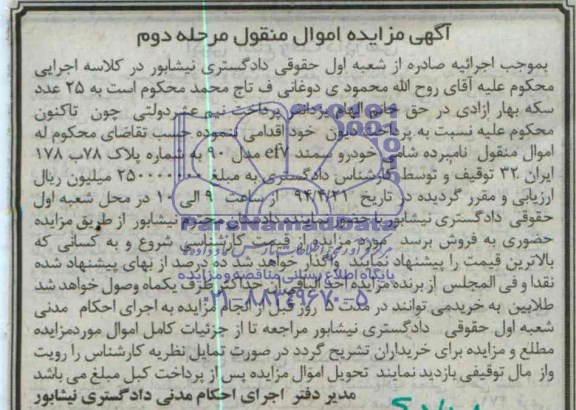 آگهی مزایده اموال منقول مرحله دوم
بموجب اجرائیه صادره از شعبه اول حقوقی دادگستری نیشابور در کلاسه اجرایی
محکوم علیه آقای روح الله محمود ی دوغانی ف تاج محمد محکوم است به ۲۵ عدد
سکه بهار ازادی در حق خانم الهام یزدانی پرداخت نیم عشردولتی چون تاکنون
محکوم علیه نسبت به پرداخت دیون خود اقدامی ننموده حسب تقاضای محکوم له
اموال منقول نامبرده شامل خودرو سمند ef7 مدل ۹۰ به شماره پلاک ۷۸ب ۱۷۸
ایران ۳۲ توقیف و توسط کارشناس دادگستری به مبلغ ۲۵۰۰۰۰۰۰۰ میلیون ریال
ارزیابی و مقرر گردیده در تاریخ ۹۴/۴/۳۱ از ساعت ۹ الی ۱۰ در محل شعبه اول
حقوقی دادگستری نیشابور با حضور نماینده دادستان محترم نیشابور از طریق مزایده
حضوری به فروش برسد مورد مزایده از قیمت کارشناسی شروع و به کسانی که
بالاترین قیمت را پیشنهاد نمایند واگذار خواهد شد ده درصد از بهای پیشنهاد شده
نقدا و فی المجلس از برنده مزایده اخذ الباقی حداکثر ظرف یکماه وصول خواهد شد
طلابین به خریدمی توانند در مدت ۵ روز قبل از انجام مزایده به اجرای احکام مدنی
شعبه اول حقوقی دادگستری نیشابور مراجعه تا از جزئیات کامل اموال موردمزایده
مطلع و مزایده برای خریداران تشریح گردد در صورت تمایل نظریه کارشناس را رویت
واز مال توقیفی بازدید نمایند تحویل اموال مزایده پس از پرداخت کبل مبلغ می باشد
مدیر دفتر اجرای احکام مدنی دادگستری نیشابور
ParsNamadData
پایگاه اطلاع رسانی مناقصه و مزایده
۰۲۱-۸۸۳۴۹۶۷۰-۵